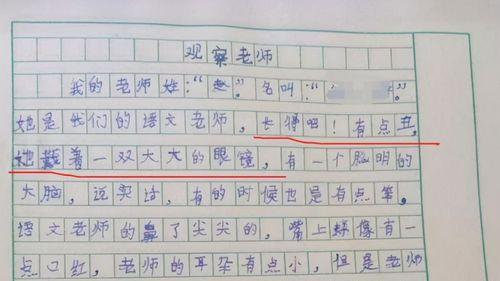 观察老师
我的老师姓:“赵”。名叫:“ ”。
她是我们的语文老师,长得吧!有点丑,
她戴着一双大大的眼镜,有一个脑明的
大脑,说实话,有的时候也是有点笨。
语文老师的鼻了尖尖的,嘴上好像有一
点口红,老师的耳朵有点小,但是老师